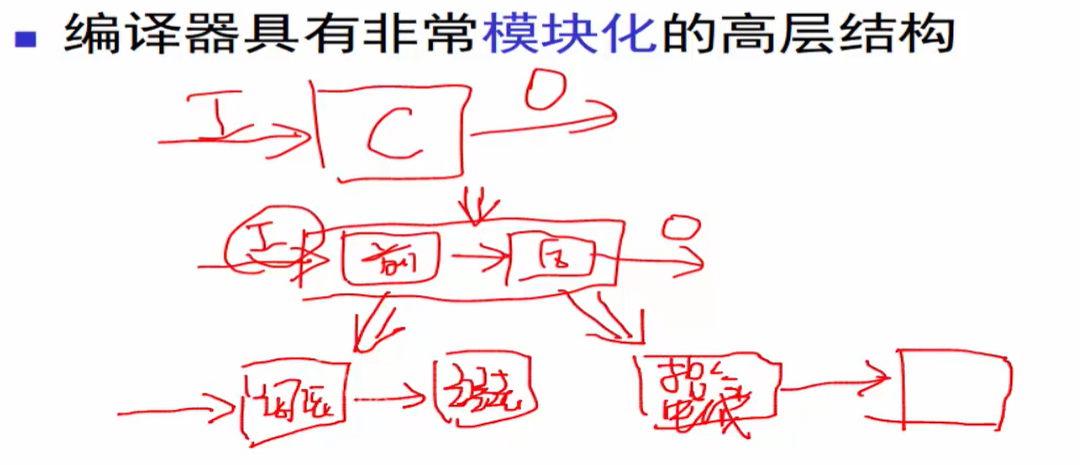 编译器具有非常模块化的高层结构
I C O
I 前 后 O
词法 语法 指令生成